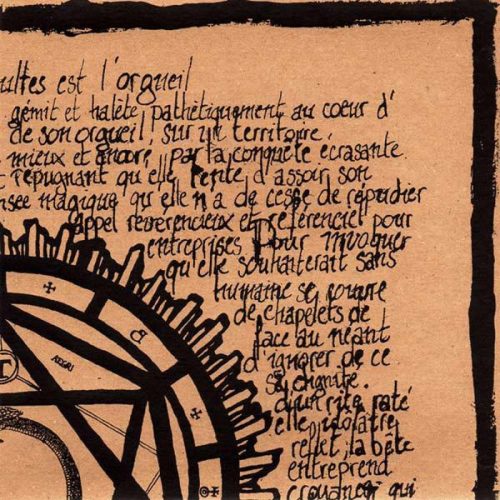 ultes est l'orgueil
gémit et halète pathétiquement au coeur d'
de son orgueil, sur un territoire,
mieux et encore, par la conquête écrasante
répugnant qu'elle tente d'assoir son
nsée magique qu'elle n'a de cesse de répudier
appel révérencieux et référenciel pour
entreprises. Pour invoquer
qu'elle souhaiterait sans
humaine se couvre
de chapelets de
face au néant
d'ignorer de ce
sa dignité.
d'un rite raté
elle idolâtre
reflet, la bête
entreprend
qui